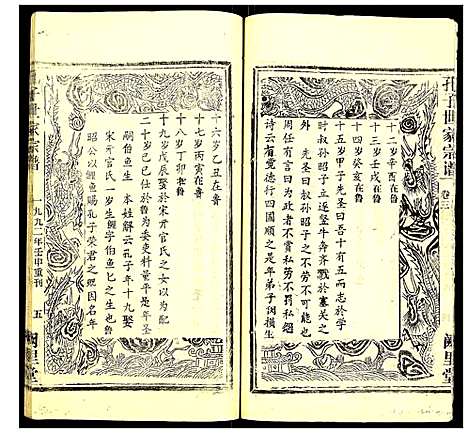 孔子世家宗譜
卷三
闕里堂
十二岁辛酉在魯
十三岁壬戌在魯
十四岁癸亥在魯
十五岁甲子先圣曰吾十有五而志於学
时叔孙昭子之竖牛奔齐戮於塞关之
周任有言曰为政者不赏私劳不罚私怨
诗云有覺德行四国顺之是年弟子闵损生
十六岁乙丑在魯
十七岁丙寅在魯
十八岁丁卯在魯
十九岁戊辰在魯娶於宋亓官氏之女以为配
二十岁已巳仕於魯为委吏料量平是年圣
嗣伯鱼生 本姓解云孔子年十九娶
宋亓官氏一岁生鲤字伯鱼之生也魯
昭公以鲤鱼赐孔子荣君之贶因名年
孔子世家宗譜
一九九二年壬申重刊
五
闕里堂